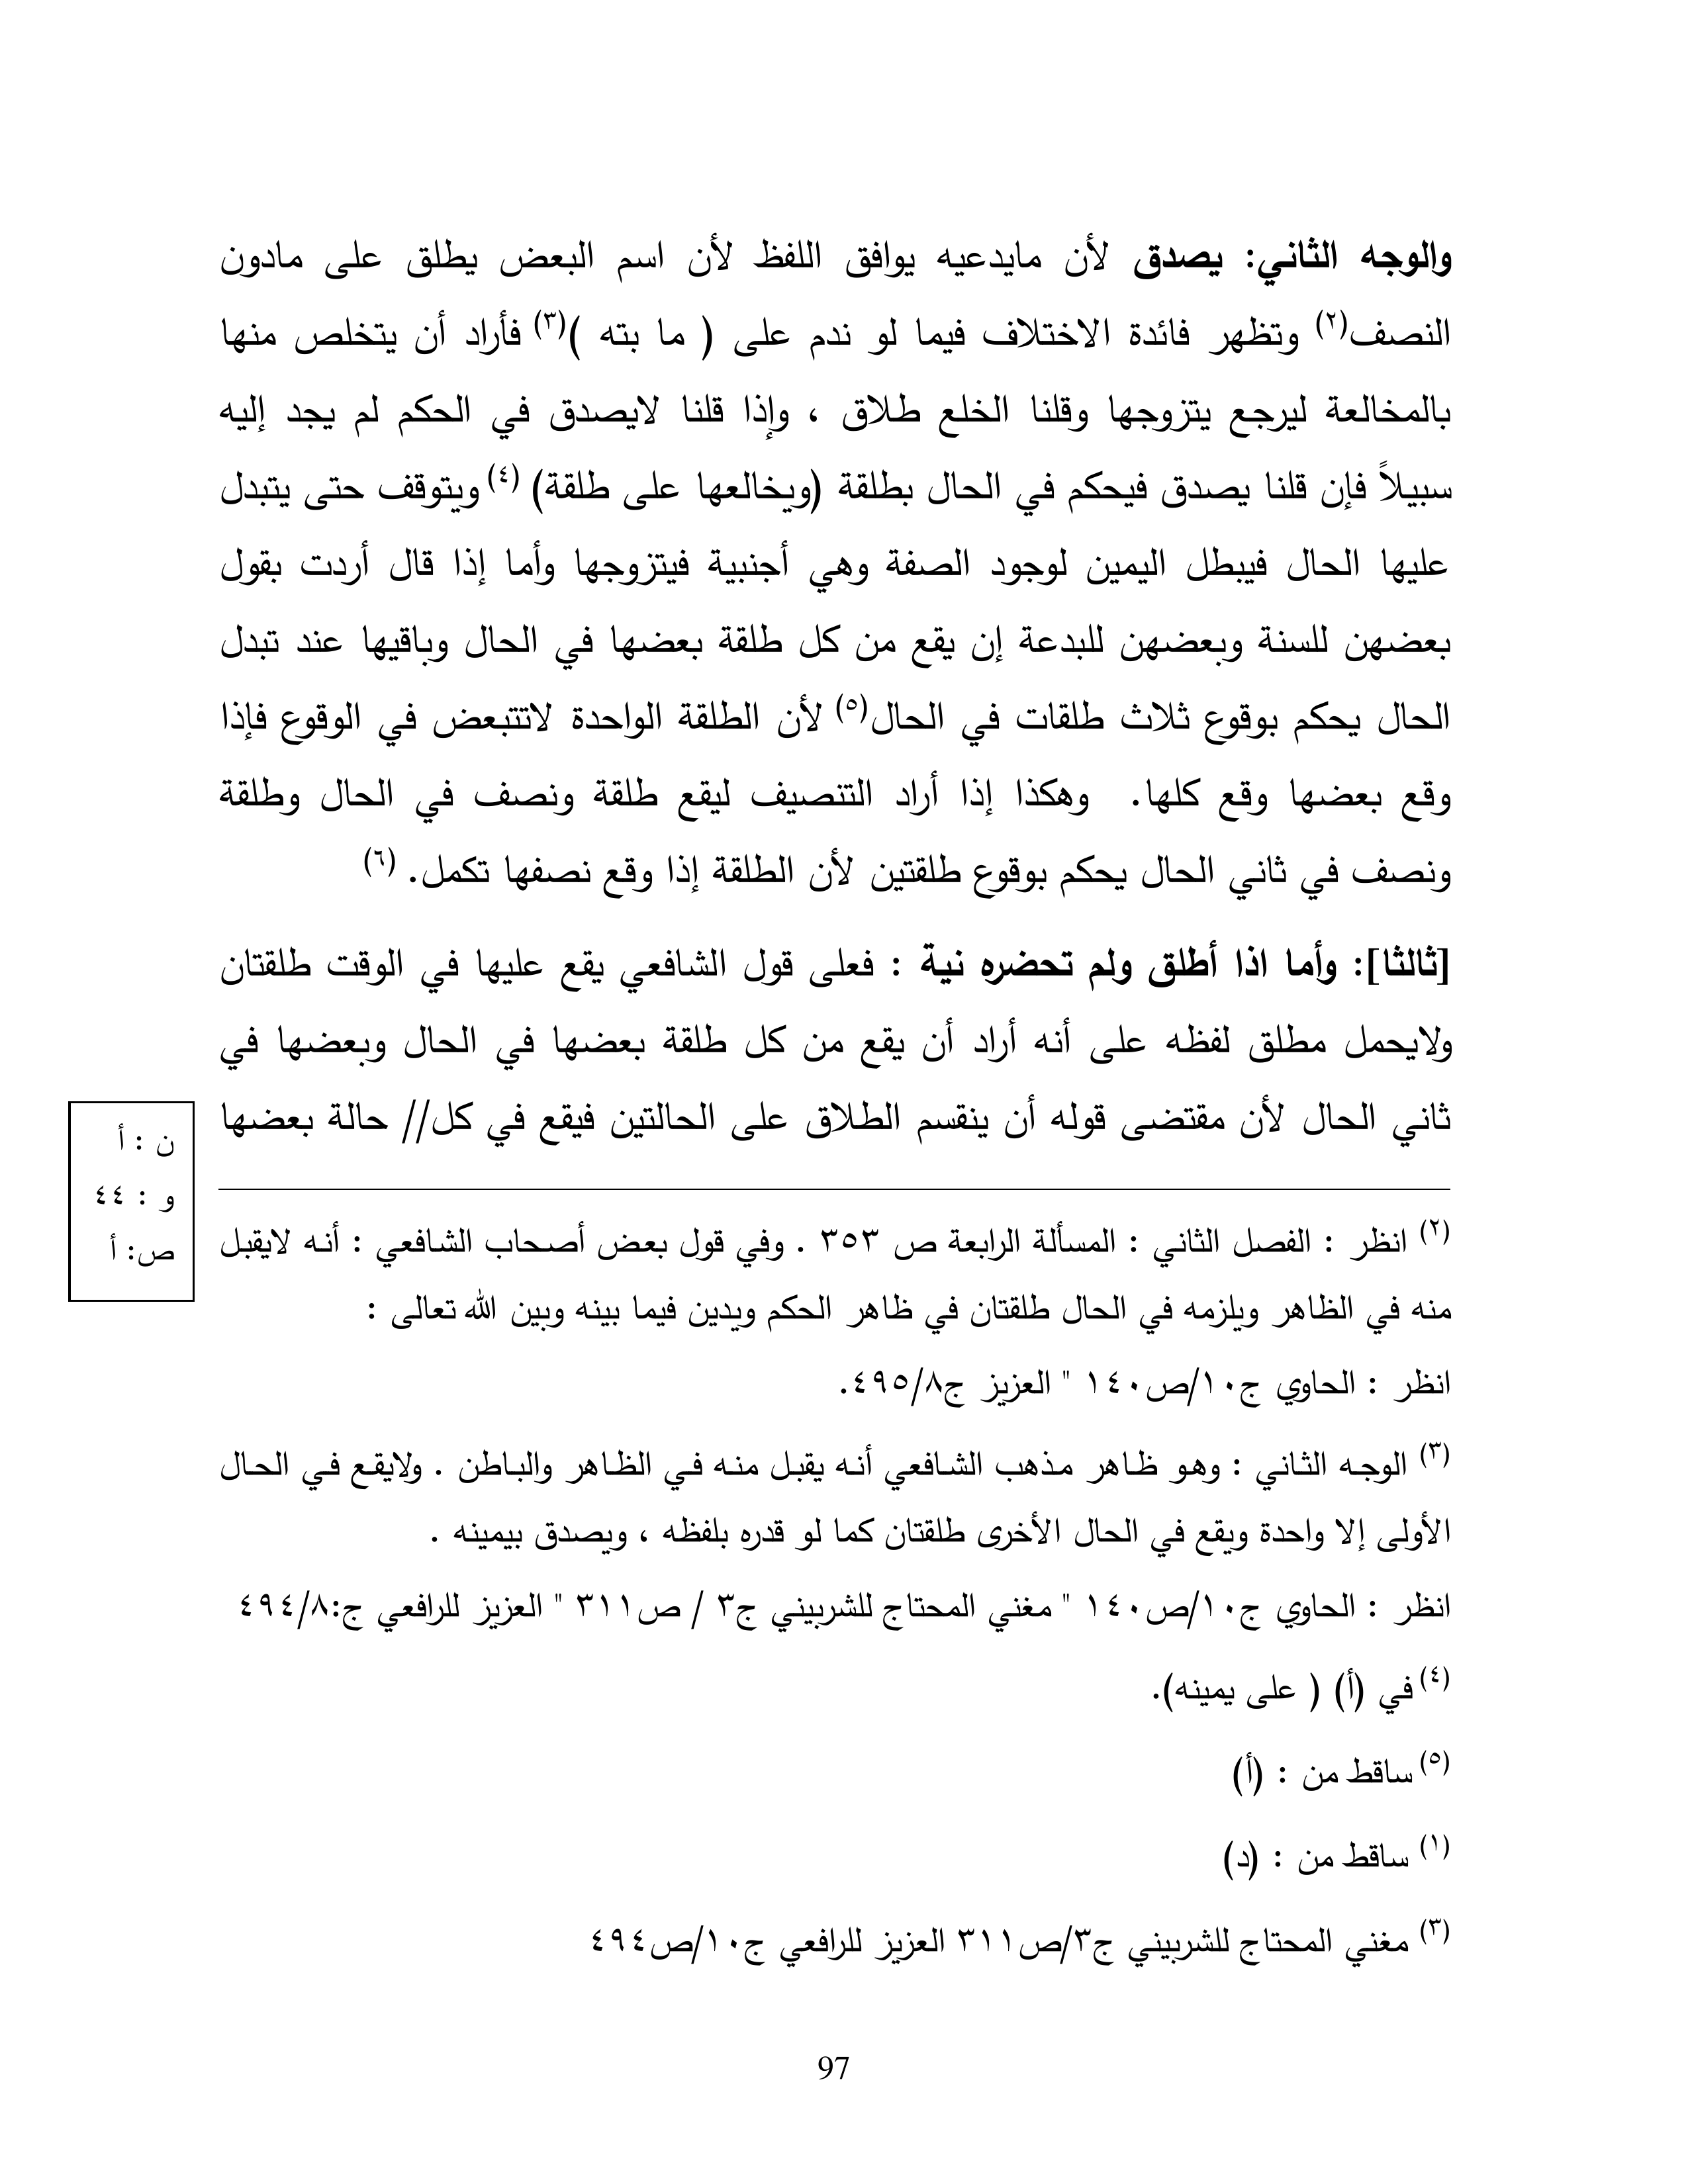 والوجه الثاني: يصدق لأن مايدعيه يوافق اللفظ لأن اسم البعض يطلق على مادون
النصف(٢) وتظهر فائدة الاختلاف فيما لو ندم على ( ما بته )(٣) فأراد أن يتخلص منها
بالمخالعة ليرجع يتزوجها وقلنا الخلع طلاق ، وإذا قلنا لايصدق في الحكم لم يجد إليه
سبيلاً فإن قلنا يصدق فيحكم في الحال بطلقة (ويخالعها على طلقة) (٤) ويتوقف حتى يتبدل
عليها الحال فيبطل اليمين لوجود الصفة وهي أجنبية فيتزوجها وأما إذا قال أردت بقول
بعضهن للسنة وبعضهن للبدعة إن يقع من كل طلقة بعضها في الحال وباقيها عند تبدل
الحال يحكم بوقوع ثلاث طلقات في الحال(٥) لأن الطلقة الواحدة لاتتبعض في الوقوع فإذا
وقع بعضها وقع كلها. وهكذا إذا أراد التنصيف ليقع طلقة ونصف في الحال وطلقة
ونصف في ثاني الحال يحكم بوقوع طلقتين لأن الطلقة إذا وقع نصفها تكمل. (٦)
[ثالثا]: وأما اذا أطلق ولم تحضره نية : فعلى قول الشافعي يقع عليها في الوقت طلقتان
ولايحمل مطلق لفظه على أنه أراد أن يقع من كل طلقة بعضها في الحال وبعضها في
ثاني الحال لأن مقتضى قوله أن ينقسم الطلاق على الحالتين فيقع في كل// حالة بعضها
ن : أ
و : ٤٤
ص: أ
(٢) انظر : الفصل الثاني : المسألة الرابعة ص ٣٥٣ . وفي قول بعض أصحاب الشافعي : أنه لايقبل
منه في الظاهر ويلزمه في الحال طلقتان في ظاهر الحكم ويدين فيما بينه وبين الله تعالى :
انظر : الحاوي ج١٠/ص١٤٠ " العزيز ج٤٩٥/٨.
(٣) الوجه الثاني : وهو ظاهر مذهب الشافعي أنه يقبل منه في الظاهر والباطن . ولايقع في الحال
الأولى إلا واحدة ويقع في الحال الأخرى طلقتان كما لو قدره بلفظه ، ويصدق بيمينه .
انظر : الحاوي ج١٠/ص١٤٠ " مغني المحتاج للشربيني ج٣ / ص٣١١ " العزيز للرافعي ج:٤٩٤/٨
(٤) في (أ) ( على يمينه).
(٥) ساقط من : (أ)
(١) ساقط من : (د)
(٣) مغني المحتاج للشربيني ج٣/ص٣١١ العزيز للرافعي ج١٠/ص٤٩٤
97